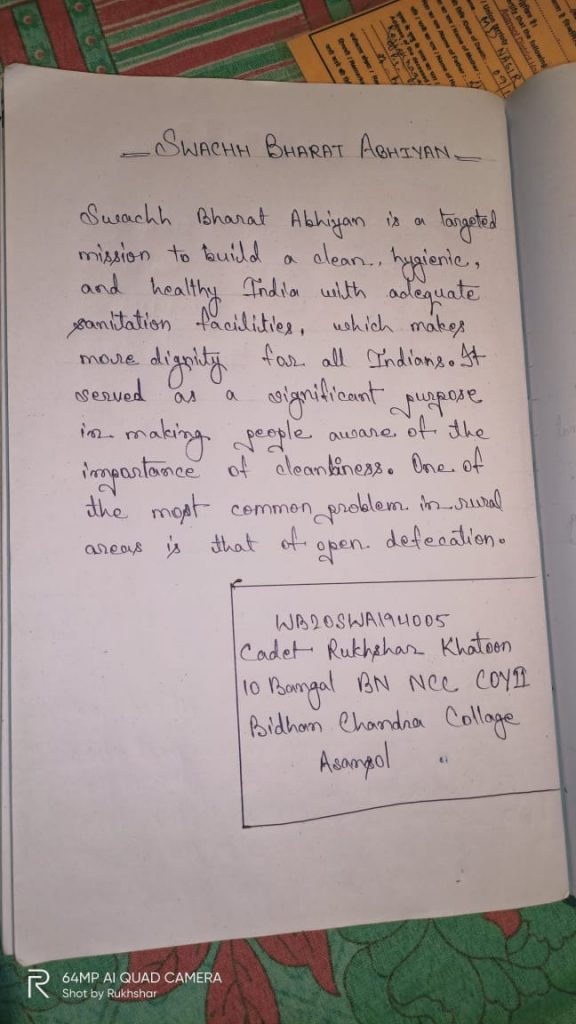 SWACHH BHARAT ABHIYAN
Swachh Bharat Abhiyan is a targeted
mission to build a clean, hygienic,
and healthy India with adequate
sanitation facilities, which makes
more dignity for all Indians. It
served as a significant purpose
in making people aware of the
importance of cleanliness. One of
the most common problem in rural
areas is that of open defecation.
WB20SWA194005
Cadet Rukhshar Khatoon
10 Bangal BN NCC COYII
Bidhan Chandra Collage
Asansol
64MP AI QUAD CAMERA
Shot by Rukhshar